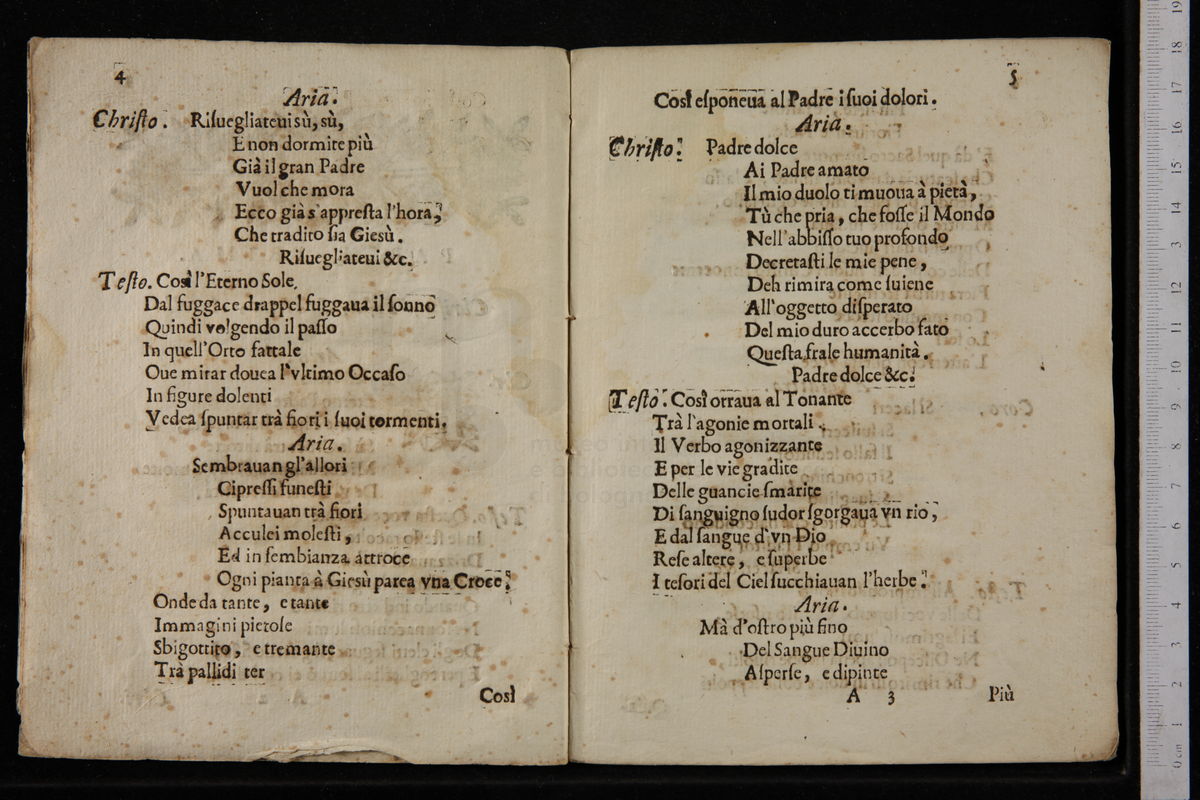 4
Aria.
Chriſto. Riſuegliateui sù, sù,
E non dormite più
Già il gran Padre
Vuol che mora
Ecco già s'appreſta l'hora,
Che tradito ſia Giesù.
Riſuegliateui &c.
Teſto. Così l'Eterno Sole,
Dal fuggace drappel fuggaua il ſonno
Quindi volgendo il paſſo
In quell'Orto fattale
Oue mirar douea l'vltimo Occaſo
In figure dolenti
Vedea ſpuntar trà fiori i ſuoi tormenti.
Aria.
Sembrauan gl'allori
Cipreſſi funeſti
Spuntauan trà fiori
Acculei moleſti,
Ed in ſembianza attroce
Ogni pianta à Giesù parea vna Croce,
Onde da tante, e tante
Immagini pietoſe
Sbigottito, e tremante
Trà pallidi ter
Così
5
Così eſponeua al Padre i ſuoi dolori.
Aria.
Chriſto. Padre dolce
Ai Padre amato
Il mio duolo ti muoua à pietà,
Tù che pria, che foſſe il Mondo
Nell'abbiſſo tuo profondo
Decretaſti le mie pene,
Deh rimira come ſuiene
All'oggetto diſperato
Del mio duro accerbo fato
Queſta frale humanità.
Padre dolce &c.
Teſto. Così orraua al Tonante
Trà l'agonie mortali.
Il Verbo agonizzante
E per le vie gradite
Delle guancie ſmarite
Di ſanguigno ſudor ſgorgaua vn rio,
E dal ſangue d'vn Dio
Reſe altere, e ſuperbe
I teſori del Ciel ſucchiauan l'herbe.
Aria.
Mà d'oſtro più fino
Del Sangue Diuino
Aſperſe, e dipinte
A 3 Più